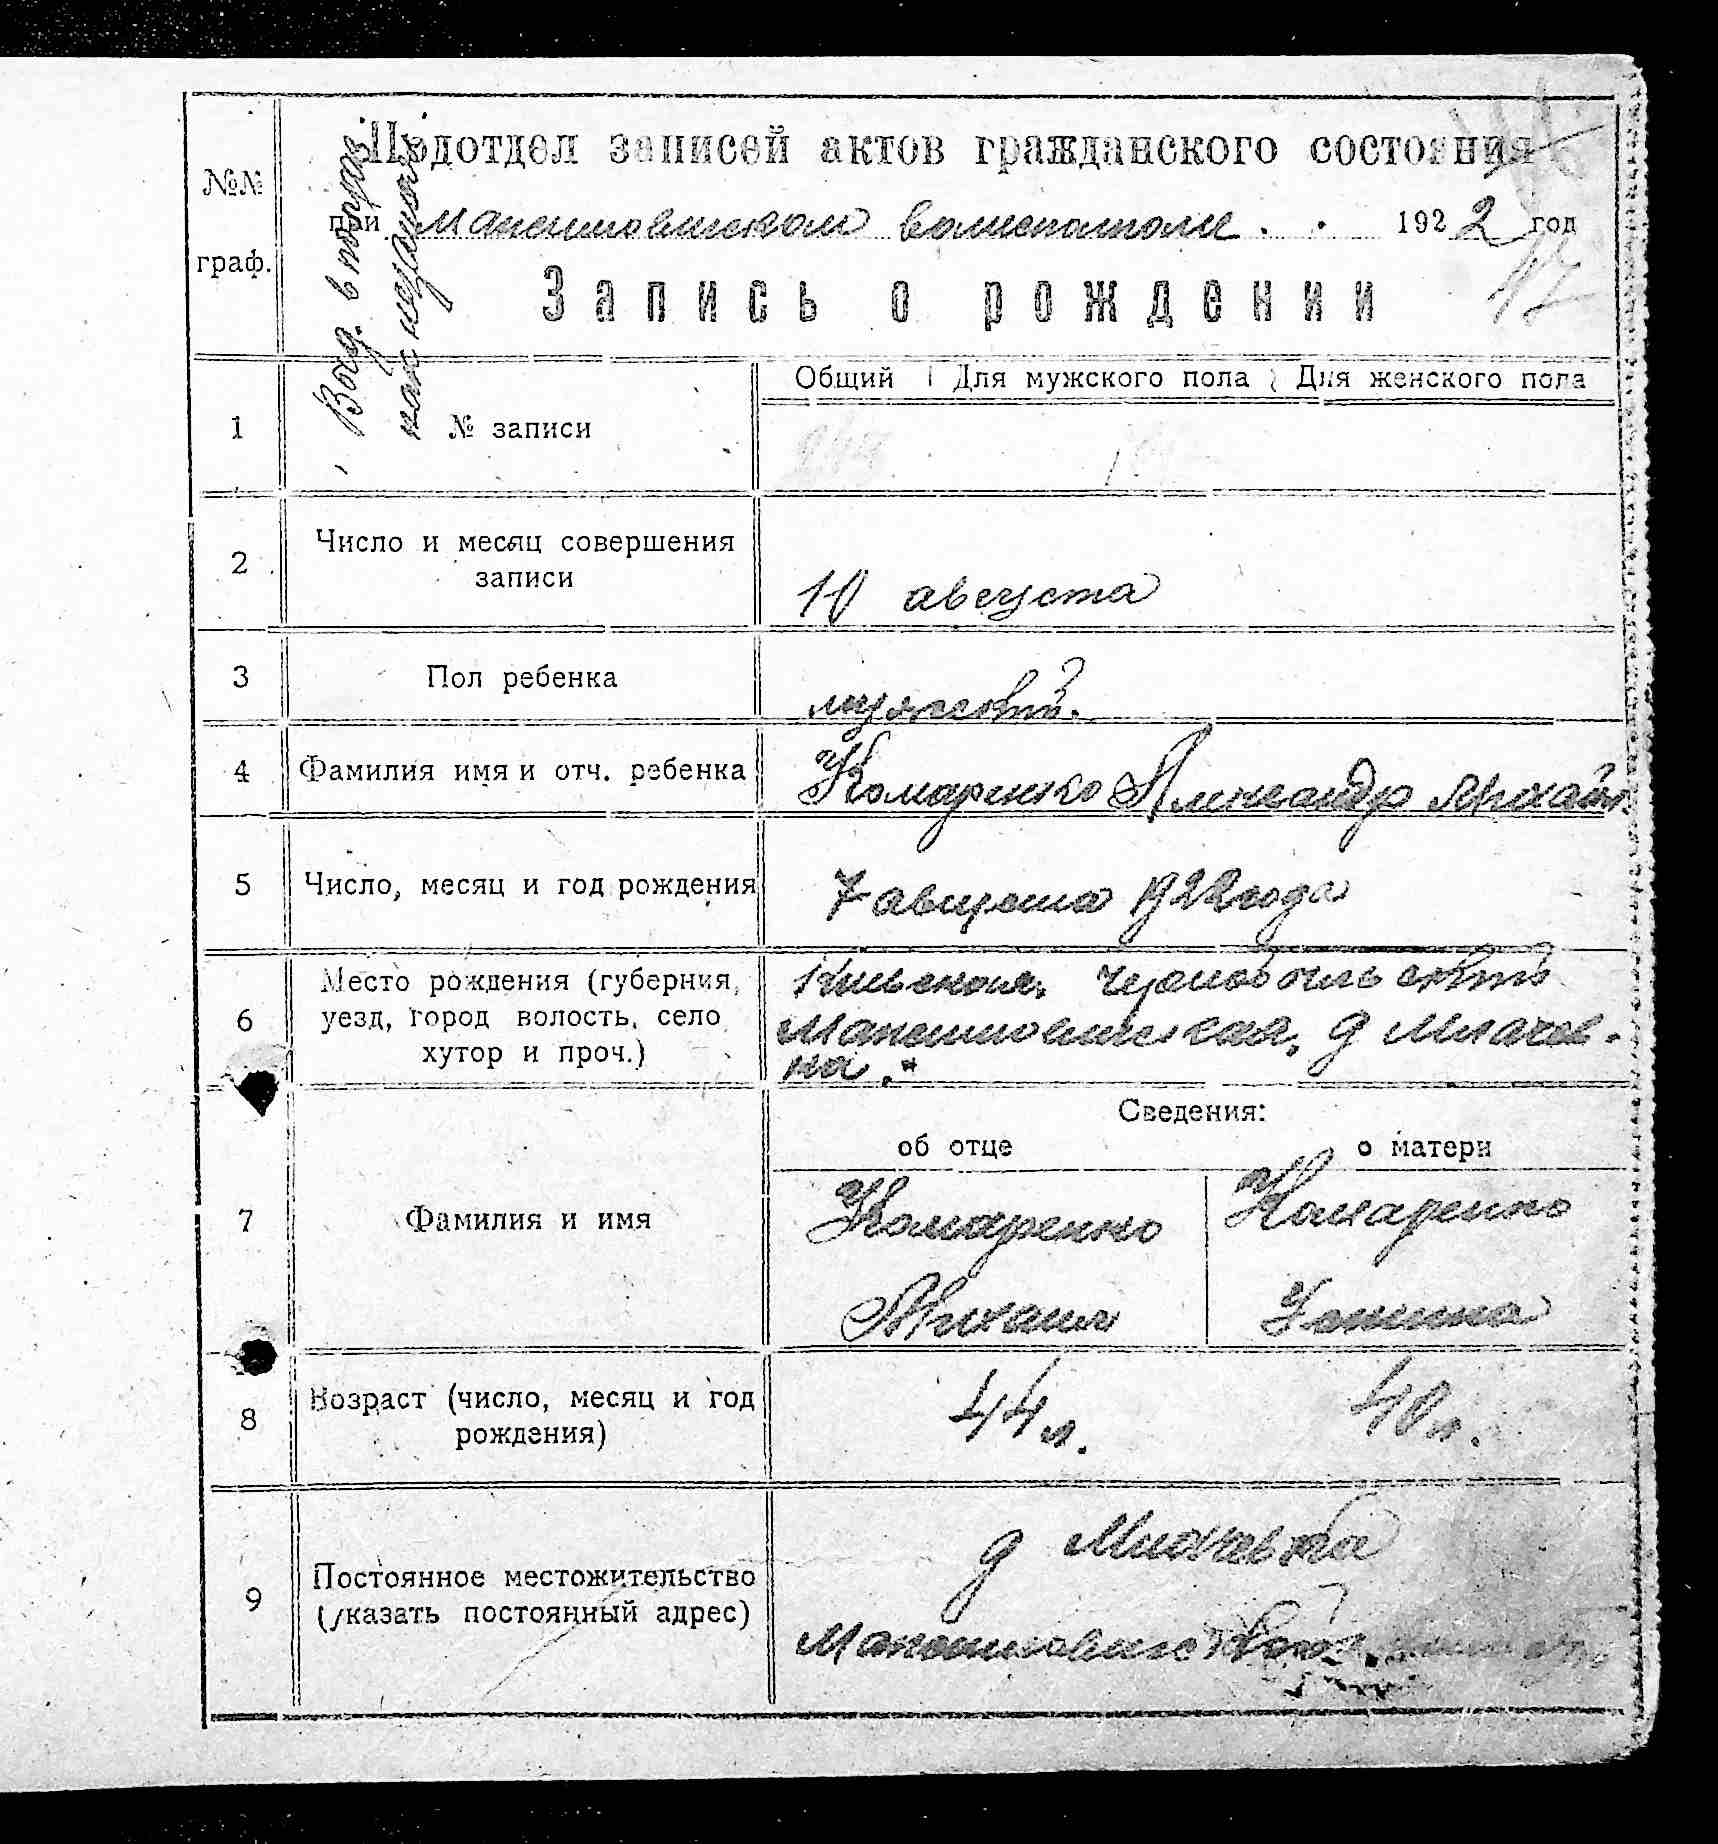 Подотдел записей актов гражданского состояния
№№ граф.
при Максимовическом волисполкоме . . 1922 год
Запись о рождении
Общий Для мужского пола Для женского пола
1 № записи
2 Число и месяц совершения
записи
10 августа
3 Пол ребенка
мужской.
4 Фамилия имя и отч. ребенка Комаренко Александр Михайл
5 Число, месяц и год рождения 7 августа 1922 года
6 Место рождения (губерния,
уезд, город волость, село
хутор и проч.)
Киевская, Чернобыльский
Максимовическая, д Млачев-
ка.
Сведения:
об отце о матери
7 Фамилия и имя
Комаренко Комаренко
Михаил
8 Возраст (число, месяц и год
рождения)
44 л. 40 л.
9 Постоянное местожительство
(указать постоянный адрес)
д Млачевка